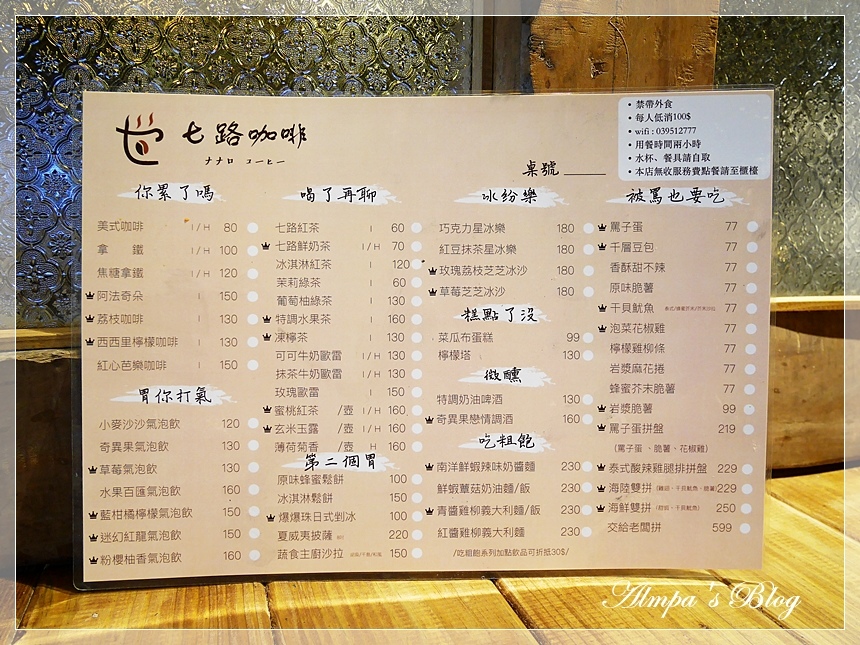 七路咖啡
ナナロ コーヒー
桌號
• 禁帶外食
• 每人低消100$
• wifi : 039512777
• 用餐時間兩小時
• 水杯、餐具請自取
• 本店無收服務費點餐請至櫃檯
你累了嗎
美式咖啡 I / H 80
拿 鐵 I / H 100
焦糖拿鐵 I / H 120
阿法奇朵 I 150
荔枝咖啡 I 130
西西里檸檬咖啡 I 130
紅心芭樂咖啡 I 150
胃你打氣
小麥沙沙氣泡飲 120
奇異果氣泡飲 130
草莓氣泡飲 130
水果百匯氣泡飲 160
藍柑橘檸檬氣泡飲 150
迷幻紅龍氣泡飲 150
粉櫻柚香氣泡飲 160
喝了再聊
七路紅茶 I 60
七路鮮奶茶 I / H 70
冰淇淋紅茶 I 120
茉莉綠茶 I 60
葡萄柚綠茶 I 130
特調水果茶 I 160
凍檸茶 I 130
可可牛奶歐雷 I / H 130
抹茶牛奶歐雷 I / H 130
玫瑰歐雷 I 150
蜜桃紅茶 /壺 I / H 160
玄米玉露 /壺 I / H 160
薄荷菊香 /壺 H 160
第二個胃
原味蜂蜜鬆餅 100
冰淇淋鬆餅 150
爆爆珠日式剉冰 100
夏威夷披薩 220
蔬食主廚沙拉 150
冰紛樂
巧克力星冰樂 180
紅豆抹茶星冰樂 180
玫瑰荔枝芝芝冰沙 180
草莓芝芝冰沙 180
糕點了沒
菜瓜布蛋糕 99
檸檬塔 130
微醺
特調奶油啤酒 130
奇異果戀情調酒 160
吃粗飽
南洋鮮蝦辣味奶醬麵 230
鮮蝦蕈菇奶油麵/飯 230
青醬雞柳義大利麵/飯 230
紅醬雞柳義大利麵 230
/吃粗飽系列加點飲品可折抵30$/
被罵也要吃
罵子蛋 77
千層豆包 77
香酥甜不辣 77
原味脆薯 77
干貝魷魚 77
泡菜花椒雞 77
檸檬雞柳條 77
岩漿麻花捲 77
蜂蜜芥末脆薯 77
岩漿脆薯 99
罵子蛋拼盤 219
(罵子蛋、脆薯、花椒雞)
泰式酸辣雞腿排拼盤 229
海陸雙拼 229
海鮮雙拼 250
交給老闆拼 599
Almpa's Blog